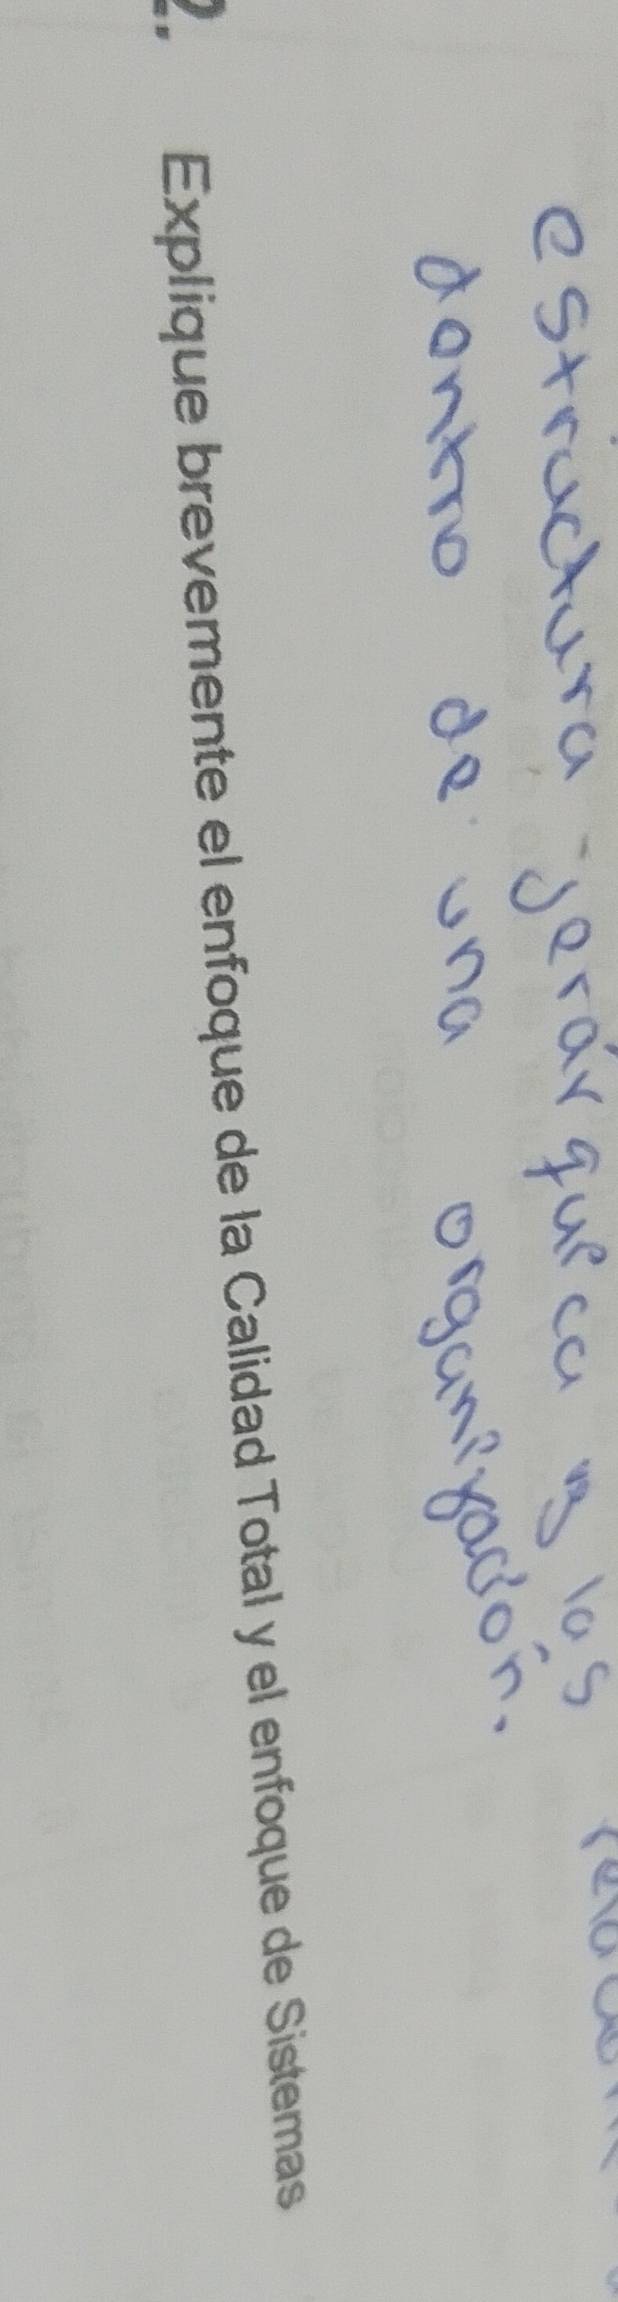 estructura jerárquica y las
dentro de una organización.
2. Explique brevemente el enfoque de la Calidad Total y el enfoque de Sistemas